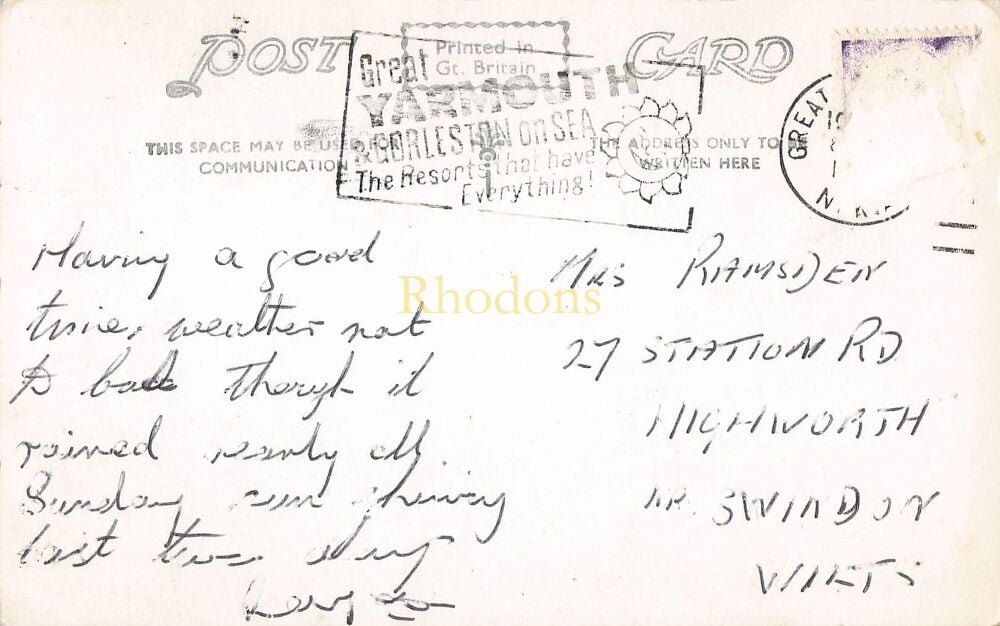 POST CARD
Printed in
Gt. Britain
Great
YARMOUTH
& GORLESTON on SEA
The Resorts that have
Everything!
THIS SPACE MAY BE USED FOR
COMMUNICATION
THE ADDRESS ONLY TO BE
WRITTEN HERE
GREAT
Having a good
time, weather not
to bad though it
rained nearly all
Sunday sun shining
last two days
Rhodons
MRS RAMSDEN
27 STATION RD
HIGHWORTH
NR SWINDON
WILTS